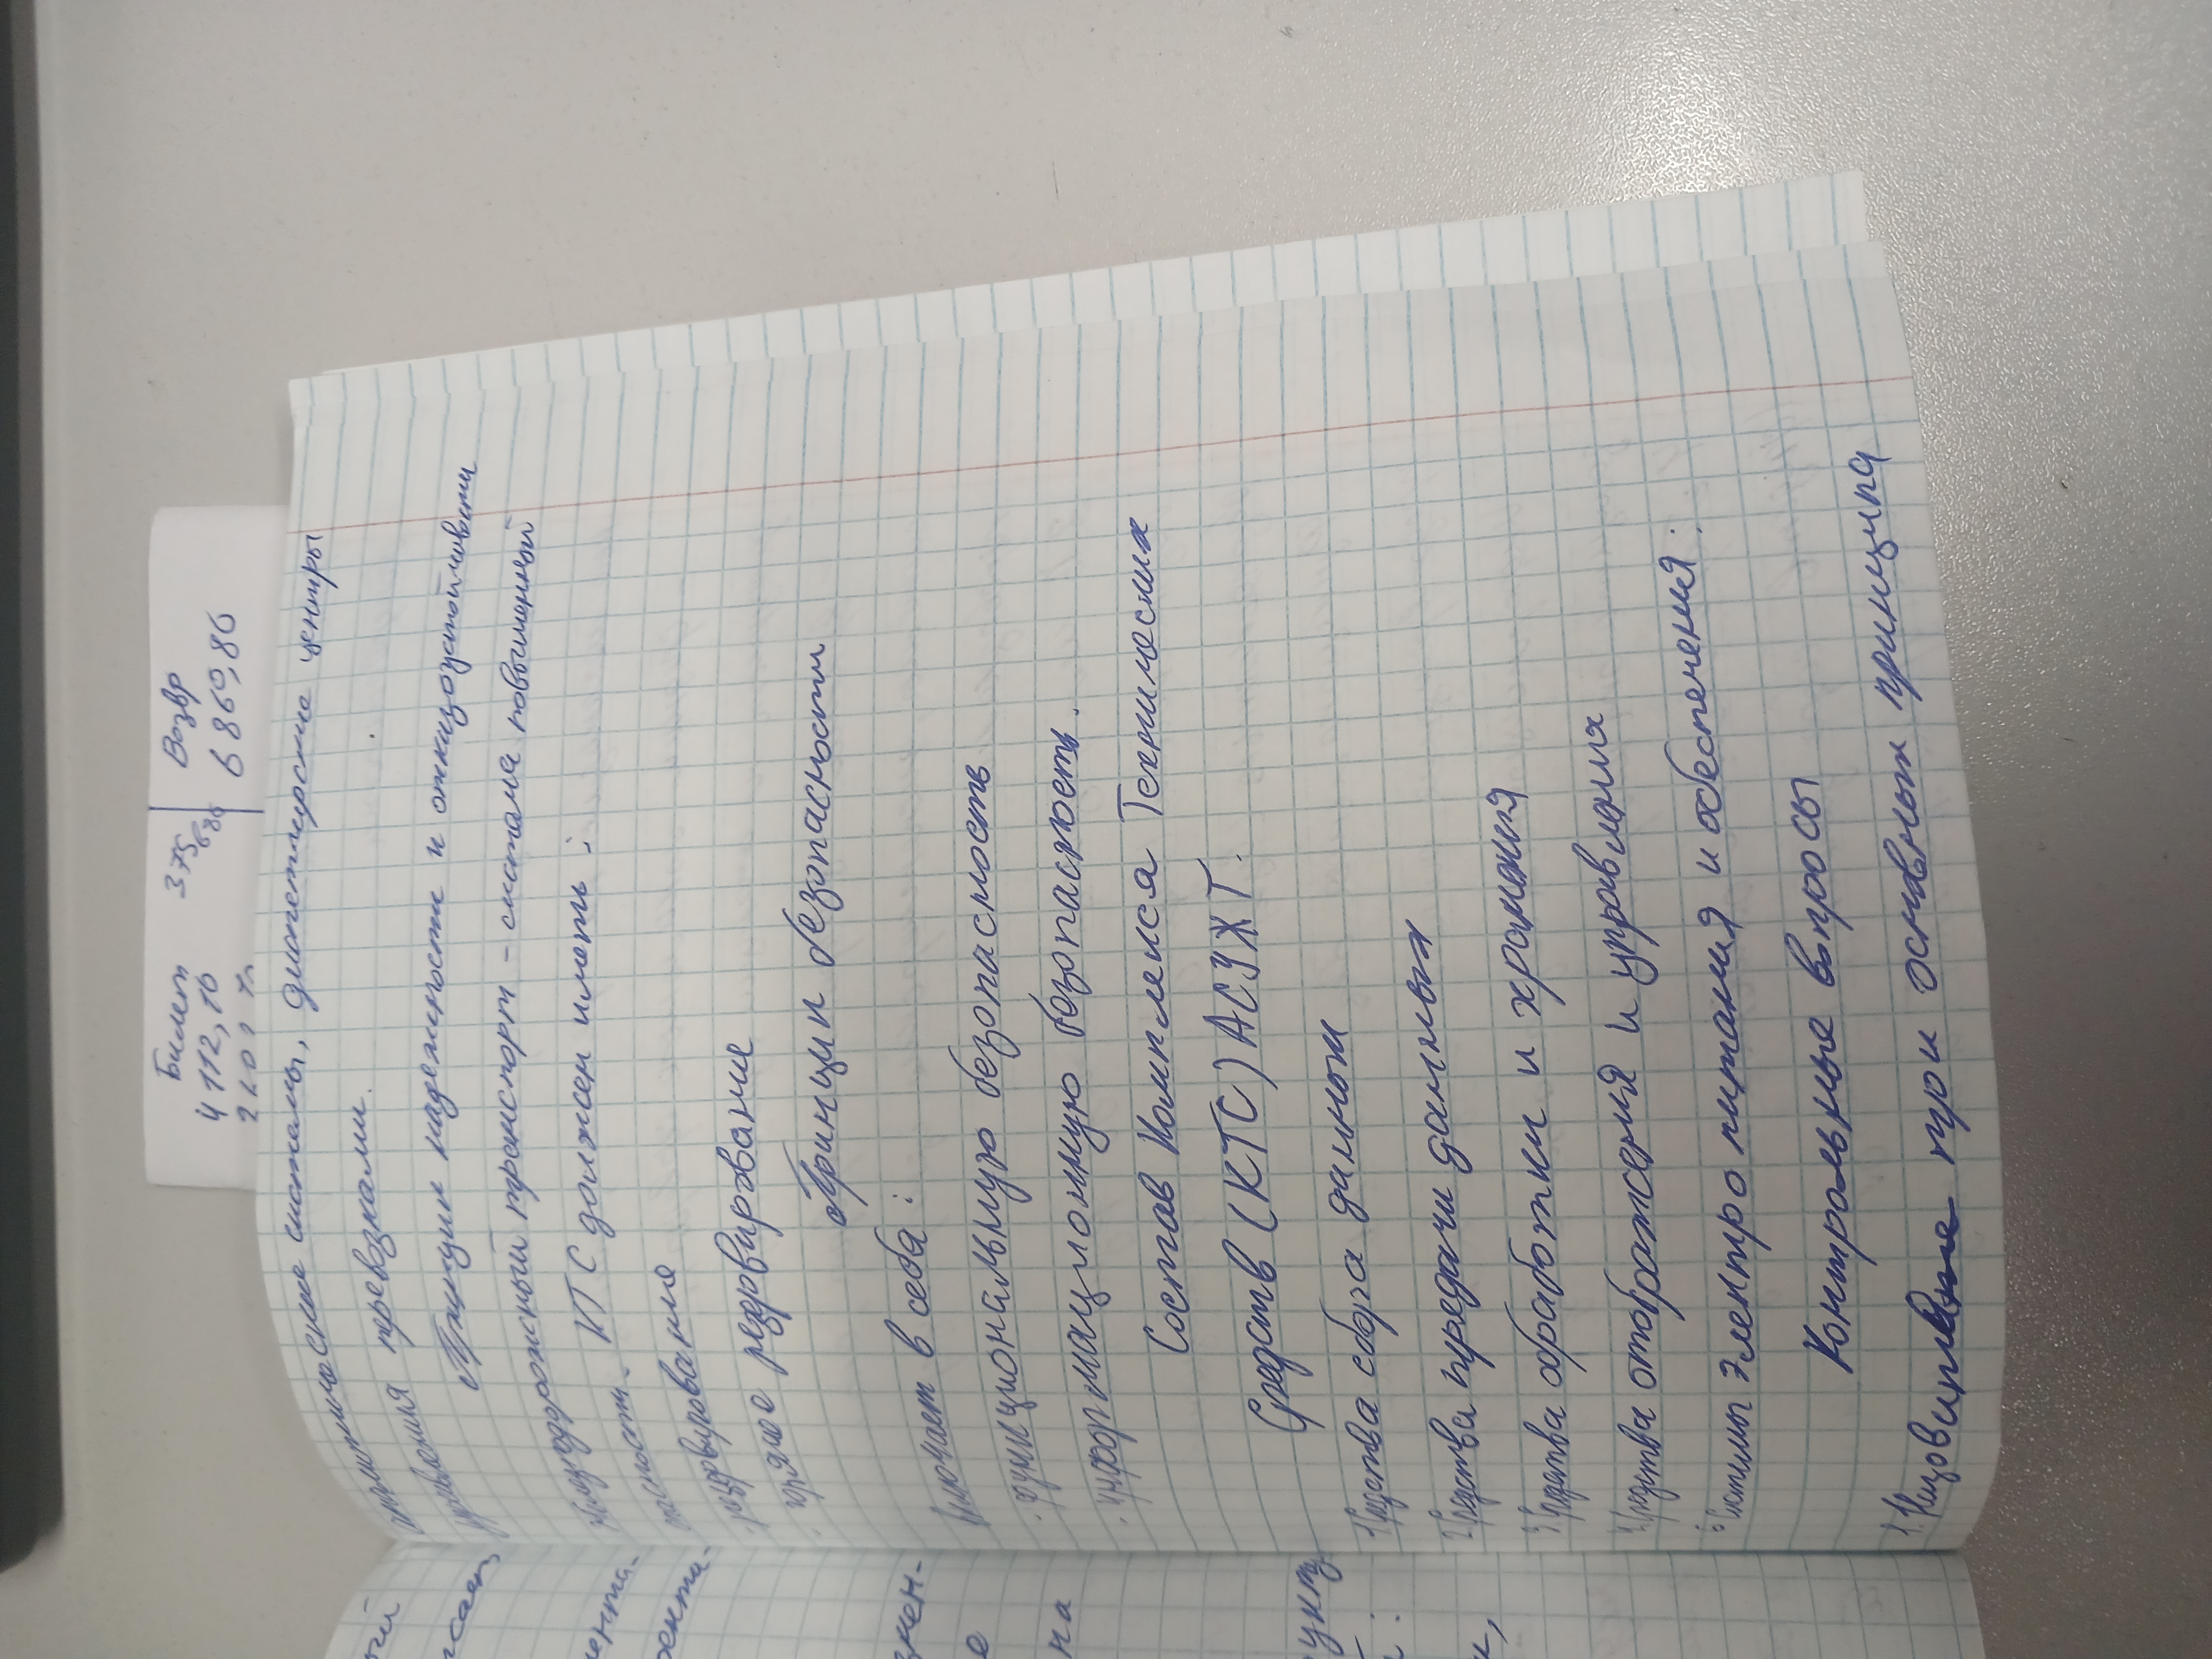 Билет 375 Возвр
4112,10 686 6860,86
автоматические системы, диспетчерские центры
управления перевозками.
Принцип надежности и отказоустойчивости
железнодорожный транспорт - система повышенной
опасности. КТС должен иметь:
· резервирование
· горячее резервирование
Принцип безопасности
Включает в себя:
· функциональную безопасность
· информационную безопасность.
Состав Комплекса Технических
Средств (КТС) АСУЖТ.
1 Средства сбора данных
2 Средства передачи данных
3 Средства обработки и хранения
4 Средства отображения и управления
5 Системы электропитания и обеспечения:
Контрольные вопросы
1. при основных принципа